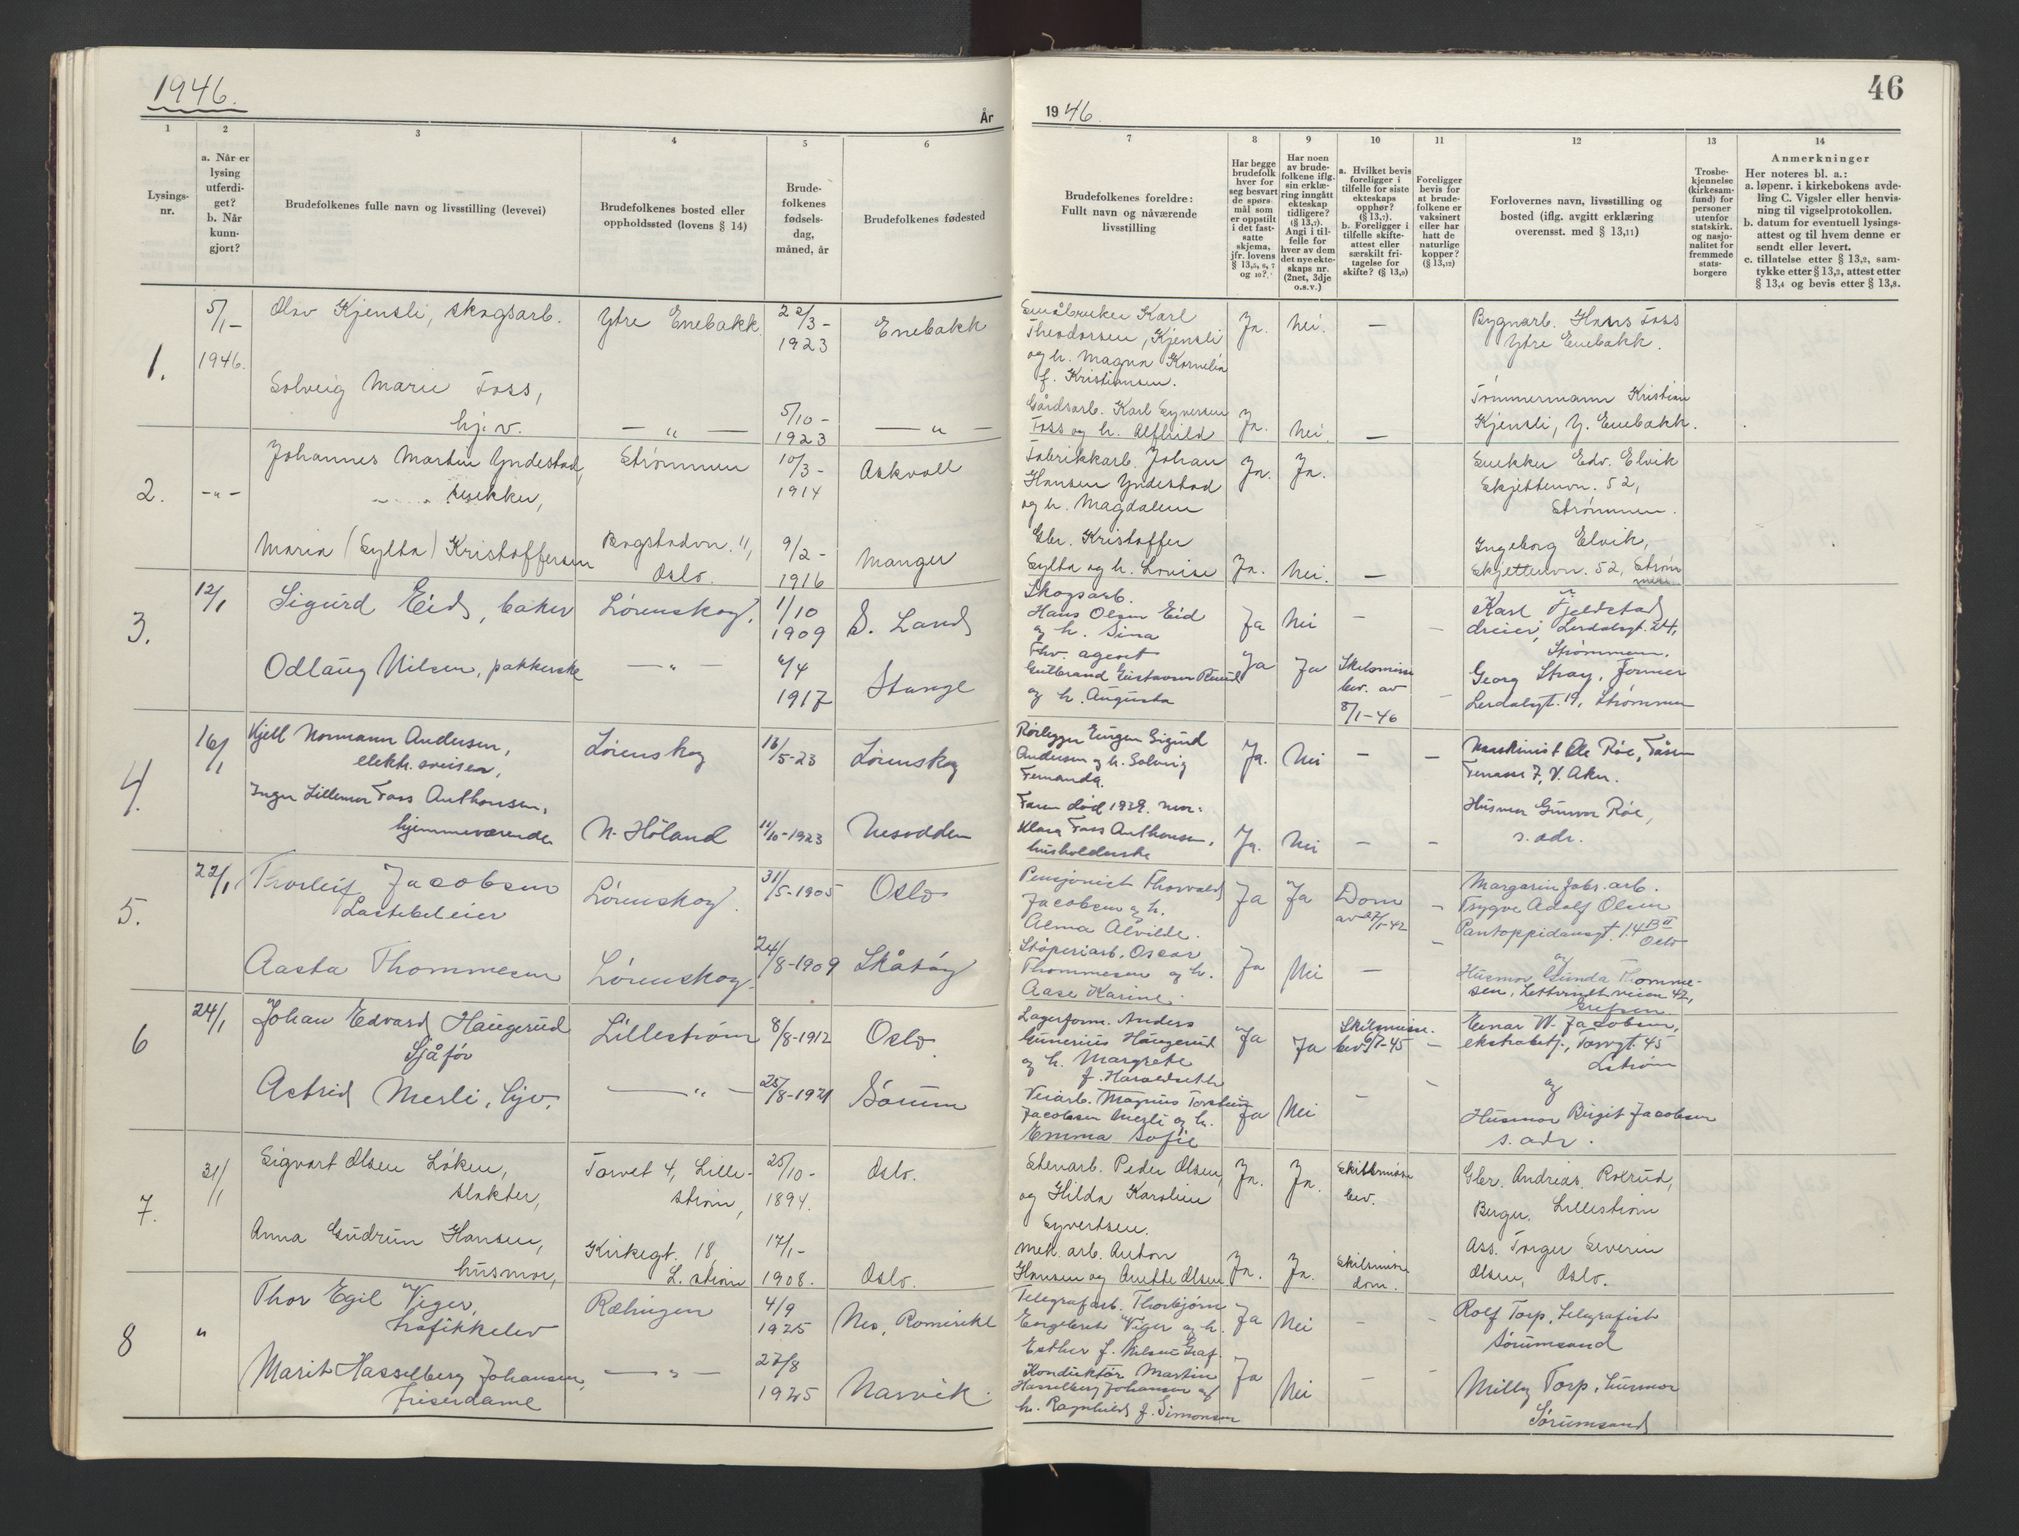 1946.
År
1
2
3
4
5
6
Lysings-
nr.
a. Når er
lysing
utferdi-
get?
b. Når
kunn-
gjort?
Brudefolkenes fulle navn og livsstilling (levevei)
Brudefolkenes bosted eller
oppholdssted (lovens § 14)
Brude-
folkenes
fødsels-
dag,
måned, år
Brudefolkenes fødested
1.
5/1 –
1946.
Olav Kjensli, skogsarb.
Ytre Enebakk
22/3 –
1923
Enebakk
Solveig Marie Foss,
hj. v.
— " —
5/10 –
1923
— " —
2.
– " –
Johannes Martin Yndestad,
snekker,
Strømmen
10/3 –
1914
Askvoll
Maria (Sylta) Kristoffersen
Bogstadvn. 11,
Oslo.
9/2 –
1916
Manger
3.
12/1
Sigurd Eid, baker
Lørenskog.
1/10
1909
S. Land
Odlaug Nilsen, pakkerske
— " —
4/4
1917
Stange
4.
16/1
Kjell Normann Andersen,
elektr. sveiser,
Lørenskog
/5-23
Lørenskog
Inger Lillemor Foss Anthonsen,
hjemmeværende
N. Høland
11/10-1923
Nesodden
5.
22/1
Thorleif Jacobsen
Lastebileier
Lørenskog.
31/5-1905
Oslo
Aasta Thommesen
Lørenskog.
24/8-1909
Skåtøy
6
24/1
Johan Edvard Haugerud
Sjåfør
Lillestrøm
8/8-1912
Oslo.
Astrid Merli, hjv.
— " —
25/8-1921
Sørum
7.
31/1
Sigvart Olsen Løken,
slakter,
Torvet 4, Lille-
strøm,
25/10 –
1894.
Oslo.
Anna Gudrun Hansen,
husmor,
Kirkegt. 18,
L. strøm
17/1 –
1908.
Oslo.
8
"
Thor Egil Viger,
trafikkelev
Rælingen
4/9
1925
Nes, Romerike
Marit Hasselberg Johansen,
friserdame
— " —
27/8
1925
Narvik.
46
1946.
7
8
9
10
11
12
13
14
Brudefolkenes foreldre:
Fullt navn og nåværende
livsstilling
Har begge
brudefolk
hver for
seg besvart
de spørs-
mål som
er oppstilt
i det fast-
satte
skjema,
jfr. lovens
§ 13,5, 6, 7
og 10?
Har noen
av brude-
folkene iflg.
sin erklæ-
ring inngått
ekteskap
tidligere?
(§ 13,7).
Angi i til-
felle for
hver av dem
det nye ekte-
skaps nr.
(2net, 3dje
o.s.v.)
a. Hvilket bevis
foreligger i
tilfelle for siste
ekteskaps
opphør?
(§ 13,7).
b. Foreligger i
tilfelle skifte-
attest eller
særskilt fri-
tagelse for
skifte? (§ 13,9)
Foreligger
bevis for
at brude-
folkene er
vaksinert
eller har
hatt de
naturlige
kopper?
(§ 13,12)
Forlovernes navn, livsstilling og
bosted (iflg. avgitt erklæring
overensst. med § 13,11)
Trosbe-
kjennelse
(kirkesam-
fund) for
personer
utenfor
statskirk.
og nasjo-
nalitet for
fremmede
stats-
borgere
Anmerkninger
Her noteres bl. a.:
a. løpenr. i kirkebokens avde-
ling C. Vigsler eller henvis-
ning til vigselprotokollen.
b. datum for eventuell lysings-
attest og til hvem denne er
sendt eller levert.
c. tillatelse etter § 13,2, sam-
tykke etter § 13,3, attest etter
§ 13,4 og bevis etter § 13,8.
Småbruker Karl
Theodorsen, Kjensli
og h. Magna Kornelia
f. Kristiansen.
Ja.
Nei.
—
Bygnarb. Hans Foss
Ytre Enebakk.
Gårdsarb. Karl Syversen
Foss og h. Alfhild
Ja.
Nei.
—
Tømmermann Kristian
Kjensli, Y. Enebakk.
Fabrikkarb. Johan
Hansen Yndestad
og h. Magdalene
Ja.
Ja.
Snekker Edv. Elvik
Skjettenvn. 52,
Strømmen.
Gbr. Kristoffer
Sylta og h. Lovise
Ja.
Nei.
—
Ingeborg Elvik,
Skjettenvn. 52, Strøm
men
Skogsarb.
Hans Olsen Eid
og h. Sina
Ja
Nei
–
–
Karl Fjeldstad
dreier, Lerdalsgt. 24,
Strømmen.
Fhv. agent
Gulbrand Gustavsen
og h. Augusta
Ja
Ja
Skilsmisse
bev. av
8/1-46
–
Georg Stray, Former
Lerdalsgt. 19, Strømmen
Rørlegger Eugen Sigurd
Andersen og h. Solveig
Fernanda.
Ja.
Nei
–
–
Maskinist Ole Røe, Tåsen
Terasse 7, V. Aker.
Faren død 1939. Mor:
Klara Foss Anthonsen,
husholderske
Ja.
Nei
–
–
Husmor Gunvor Røe,
s. adr.
Pensjonist Thorvald
Jacobsen og h.
Alma Alvilde.
Ja
Ja
Dom
av 27/1-42
–
Margarin fabr. arb.
Trygve Adolf Olsen
Pantoppidansgt. 14 B II
Oslo
Støperiarb. Oscar
Thommesen og h.
Aase Karine.
Ja
Nei
–
–
og
Husmor Gunda Thomme-
sen, Lettvintveien 42,
Grefsen
Lagerform. Anders
Gunerius Haugerud
og h. Margrete
f. Haraldseth
Ja
Ja
Skilsmisse.
bev. /7-45
–
Einar W. Jacobsen,
ekstrabetj., Torvgt. 45
Lstrøm
Veiarb. Magnus Torsberg
Jacobsen Merli og h.
Emma Sofie
Ja
Nei
–
–
og
Husmor Birgit Jacobsen
s. adr.
Stenarb. Peder Olsen,
og Hilda Karoline
Syvertsen.
Ja.
Ja.
Skilsmisse
bev.
Gbr. Andreas Roterud,
Berger, Lillestrøm
Mek. arb. Anton
Hansen og Anette Olsen
Ja.
Ja.
Skilsmisse
dom.
Ass. Torger Severin
Olsen, Oslo.
Telegrafarb. Thorbjørn
Engebret Viger og h.
Esther f. Nilsen Graf.
Ja
Nei
–
–
Rolf Torp, telegrafist
Sørumsand
Konduktør Martin
Hasselberg Johansen og
h. Ragnhild f. Simonsen
Ja
Nei
–
–
Milly Torp, husmor
Sørumsand